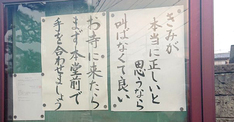 きみが
本当に正しいと
思うなら
叫ばなくて良い
お寺に来たら
まず本堂前で
手を合わせましょう